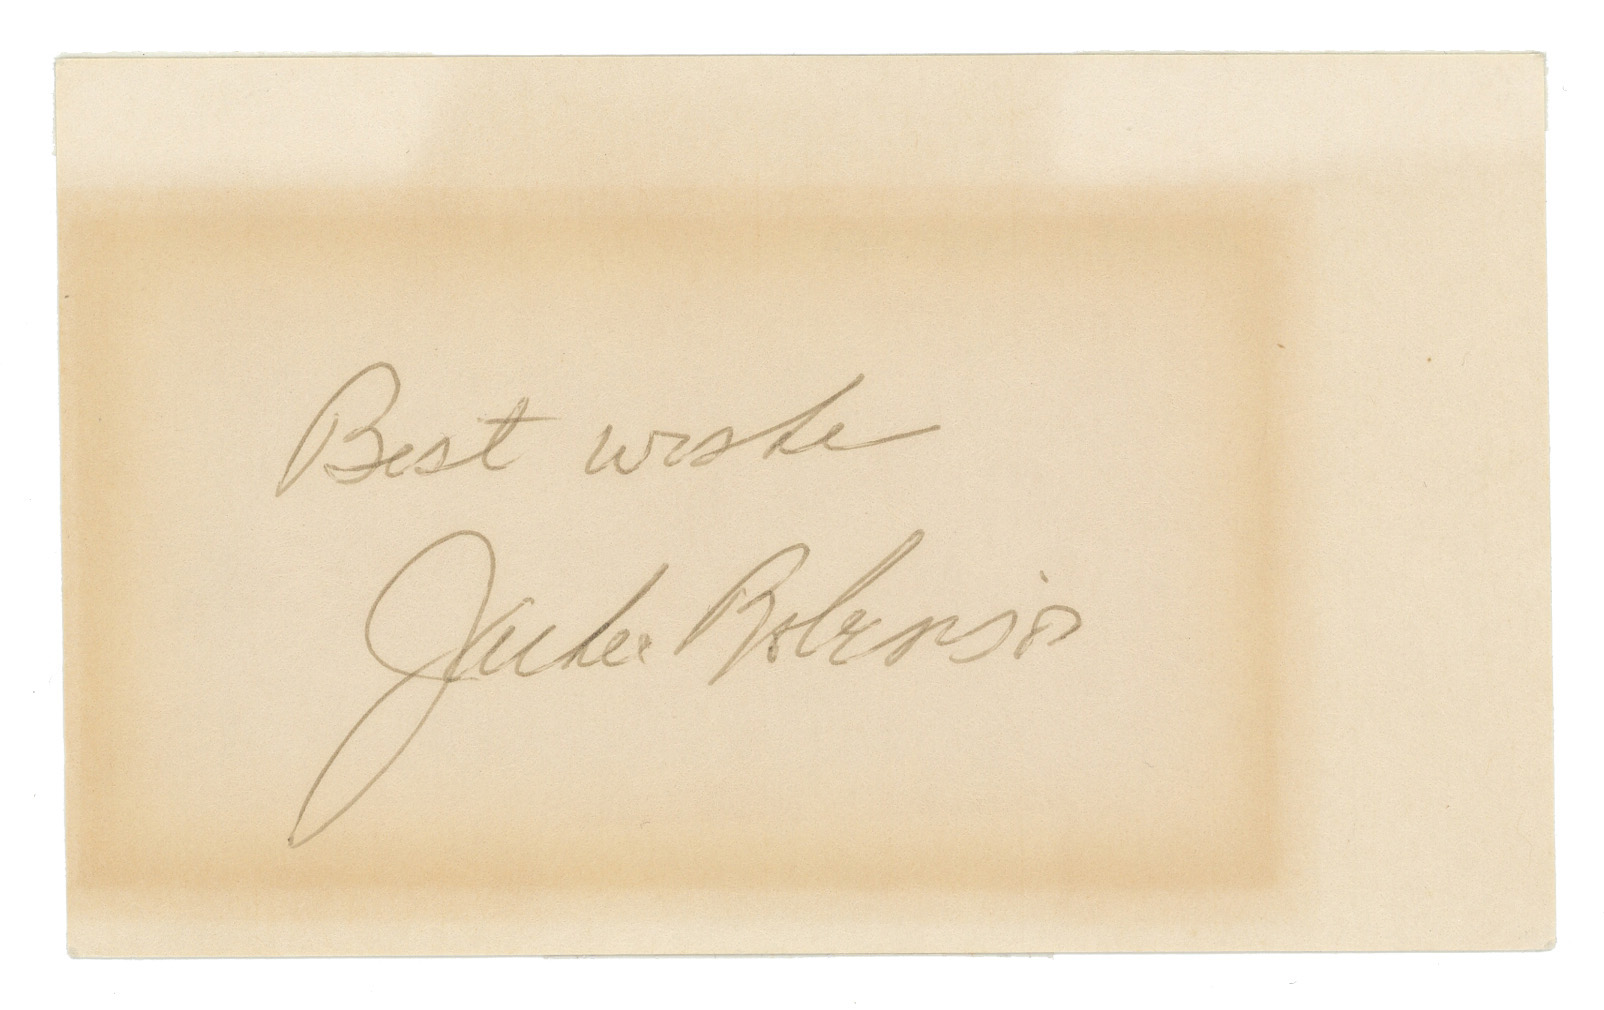 Best wishe
Jackie Robinson